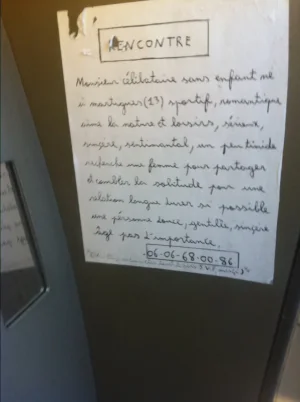 RENCONTRE
Monsieur célibataire sans enfant né
à martigues (13) sportif, romantique,
aime la nature et loisirs, sérieux,
sincère, sentimental, un peu timide
recherche une femme pour partager
et combler la solitude pour une
relation longue durée si possible
une personne douce, gentille, sincère
âge pas d'importance.
06-06-68-00-86